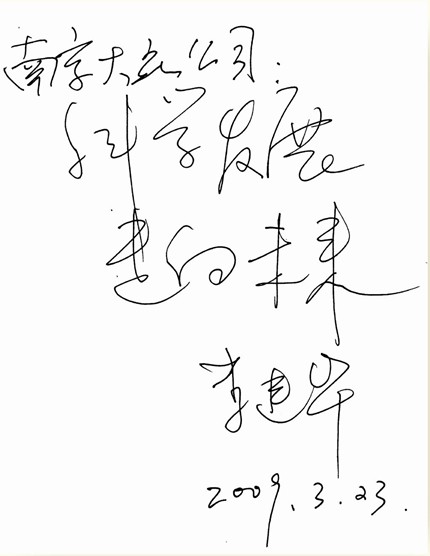 南京大 公司:
科学发展
走向未来
李建华
2009.3.23.